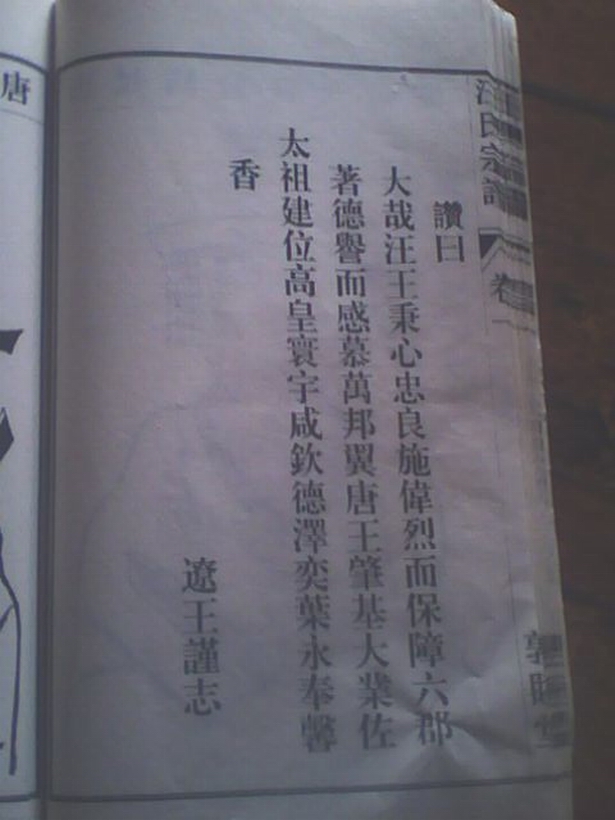 汪氏宗譜
卷
讚曰
大哉汪王秉心忠良施偉烈而保障六郡
著德譽而感慕萬邦翼唐王肇基大業佐
太祖建位高皇寰宇咸欽德澤奕葉永奉馨
香
遼王謹志
唐